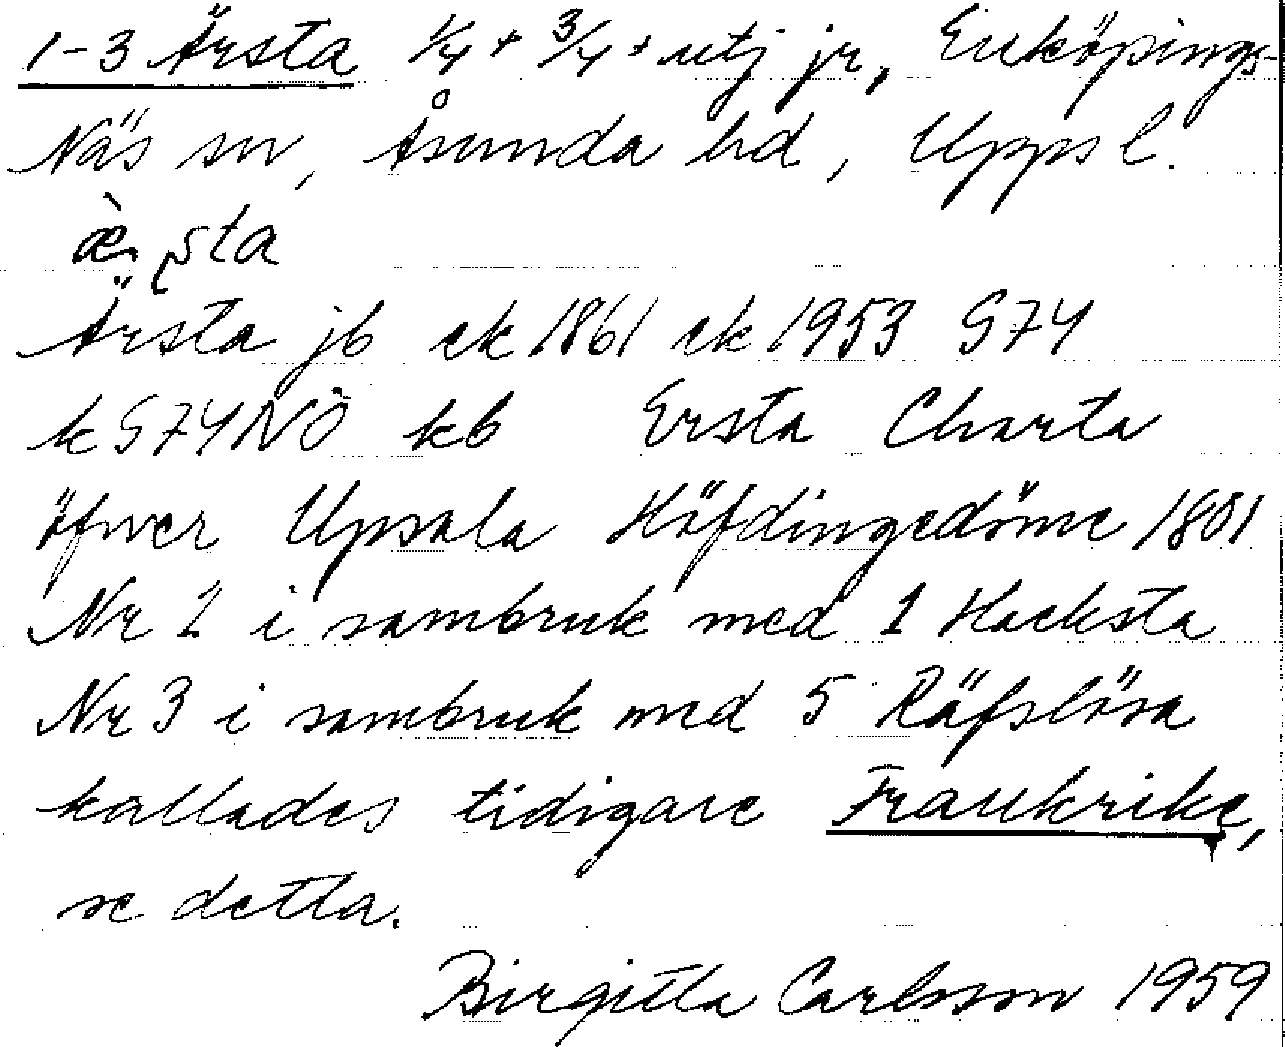 1-3 Ärsta 1/4 + 3/4 + utj jr, Enköpings-
Näs sn, Åsunda hd, Upps l.
Ärsta jb ek 1861 ek 1953 G74
k G74NÖ kb Ersta Charta
öfwer Upsala Höfdingedöme 1801
Nr 2 i sambruk med 1 Hacksta
Nr 3 i sambruk med 5 Räfslösa
kallades tidigare Frankrike,
se detta.
Birgitta Carlsson 1959